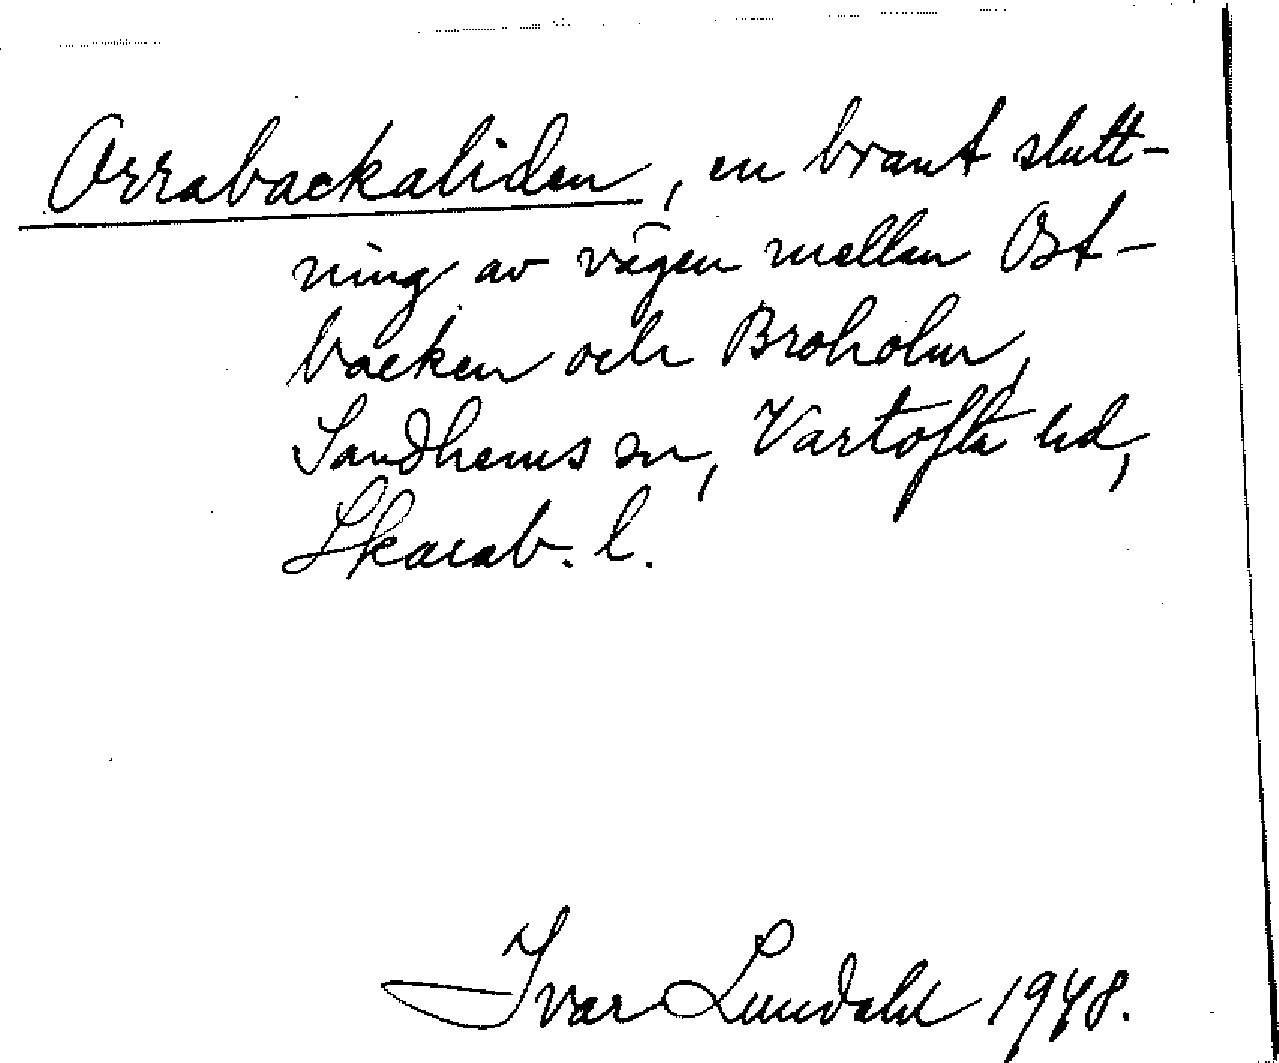 Orrabackaliden, en brant slutt-
ning av vägen mellan Ost-
backen och Broholm,
Sandhems sn, Vartofta hd,
Skarab. l.
Ivar Lundahl 1948.